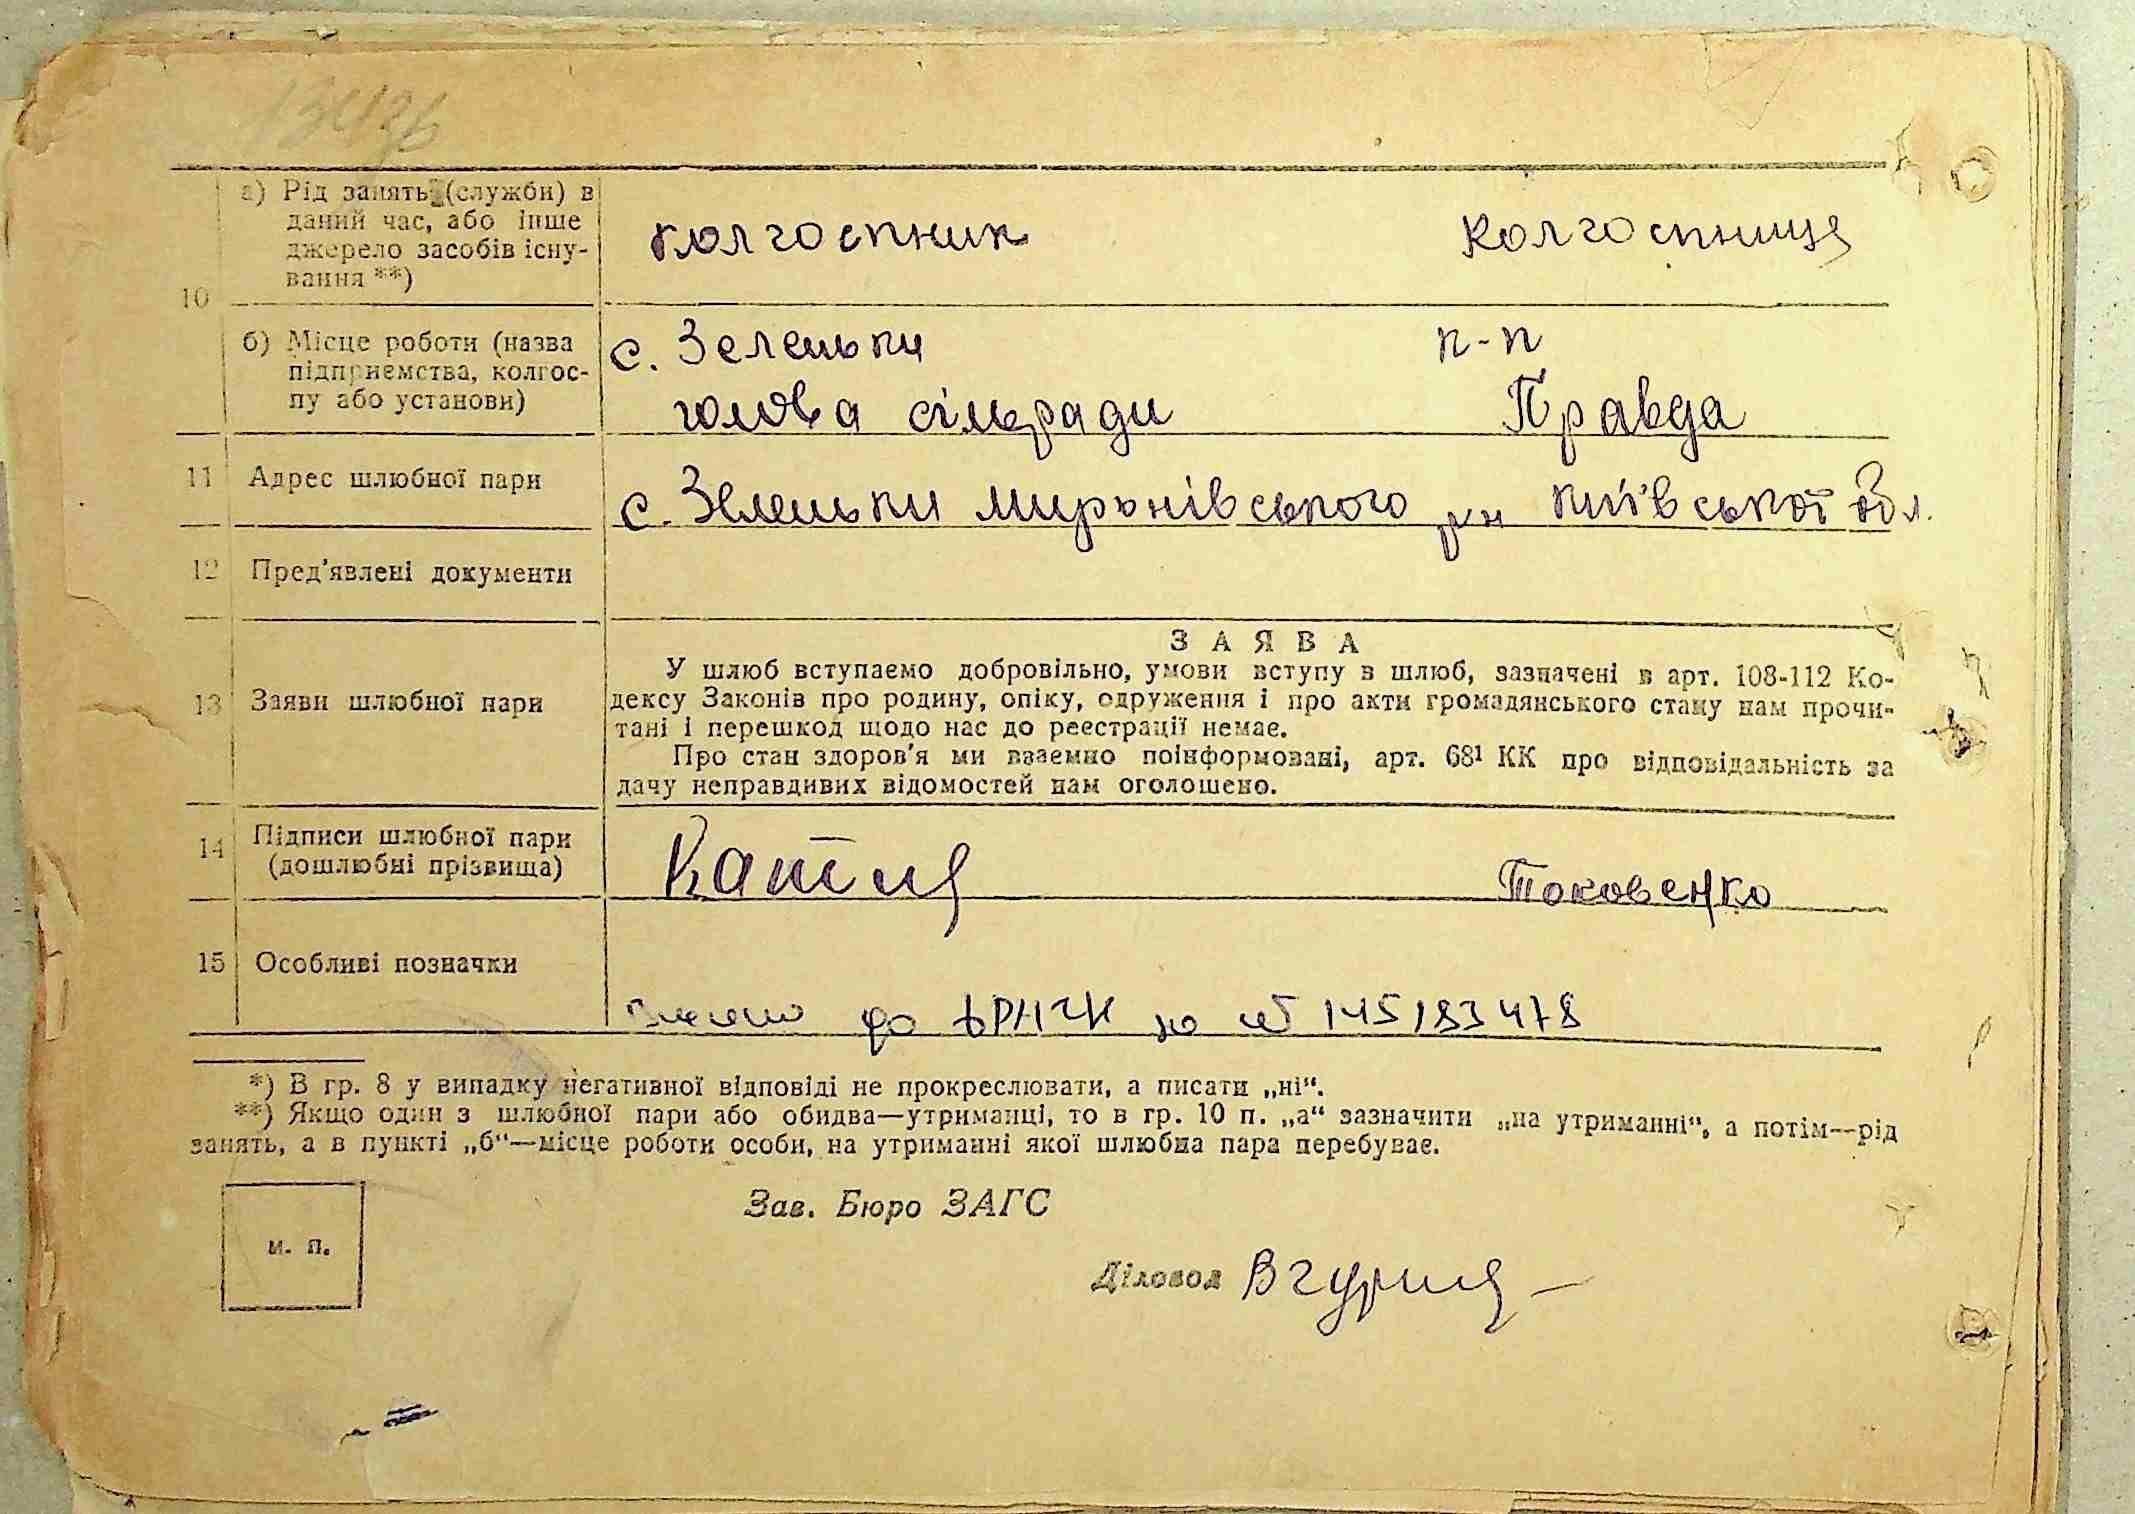 а) Рід занять (служби) в
даний час, або інше
джерело засобів існу-
вання **)
колгоспник
колгоспниця
10
б) Місце роботи (назва
підприємства, колгос-
пу або установи)
с. Зеленьки
к-п
голова сільради
Правда
11 Адрес шлюбної пари
с. Зеленьки миронівського р-н київської обл.
12 Пред'явлені документи
13 Заяви шлюбної пари
ЗАЯВА
У шлюб вступаємо добровільно, умови вступу в шлюб, зазначені в арт. 108-112 Ко-
дексу Законів про родину, опіку, одруження і про акти громадянського стану нам прочи-
тані і перешкод щодо нас до реєстрації немає.
Про стан здоров'я ми взаємно поінформовані, арт. 68¹ КК про відповідальність за
дачу неправдивих відомостей нам оголошено.
14 Підписи шлюбної пари
(дошлюбні прізвища)
Токовенко
15 Особливі позначки
до ДРАЦС за № 145183478
*) В гр. 8 у випадку негативної відповіді не прокреслювати, а писати „ні“.
**) Якщо один з шлюбної пари або обидва—утриманці, то в гр. 10 п. „а“ зазначити „на утриманні“, а потім—рід
занять, а в пункті „б“—місце роботи особи, на утриманні якої шлюбна пара перебуває.
Зав. Бюро ЗАГС
м. п.
Діловод